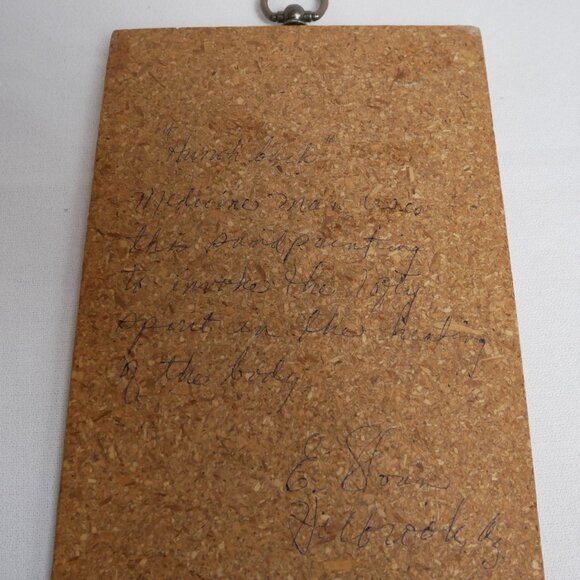 "Hunch back"
Medicine man uses
this sandpainting
to invoke the lofty
spirit in the healing
of the body
E. Sloan
Holbrook, Az